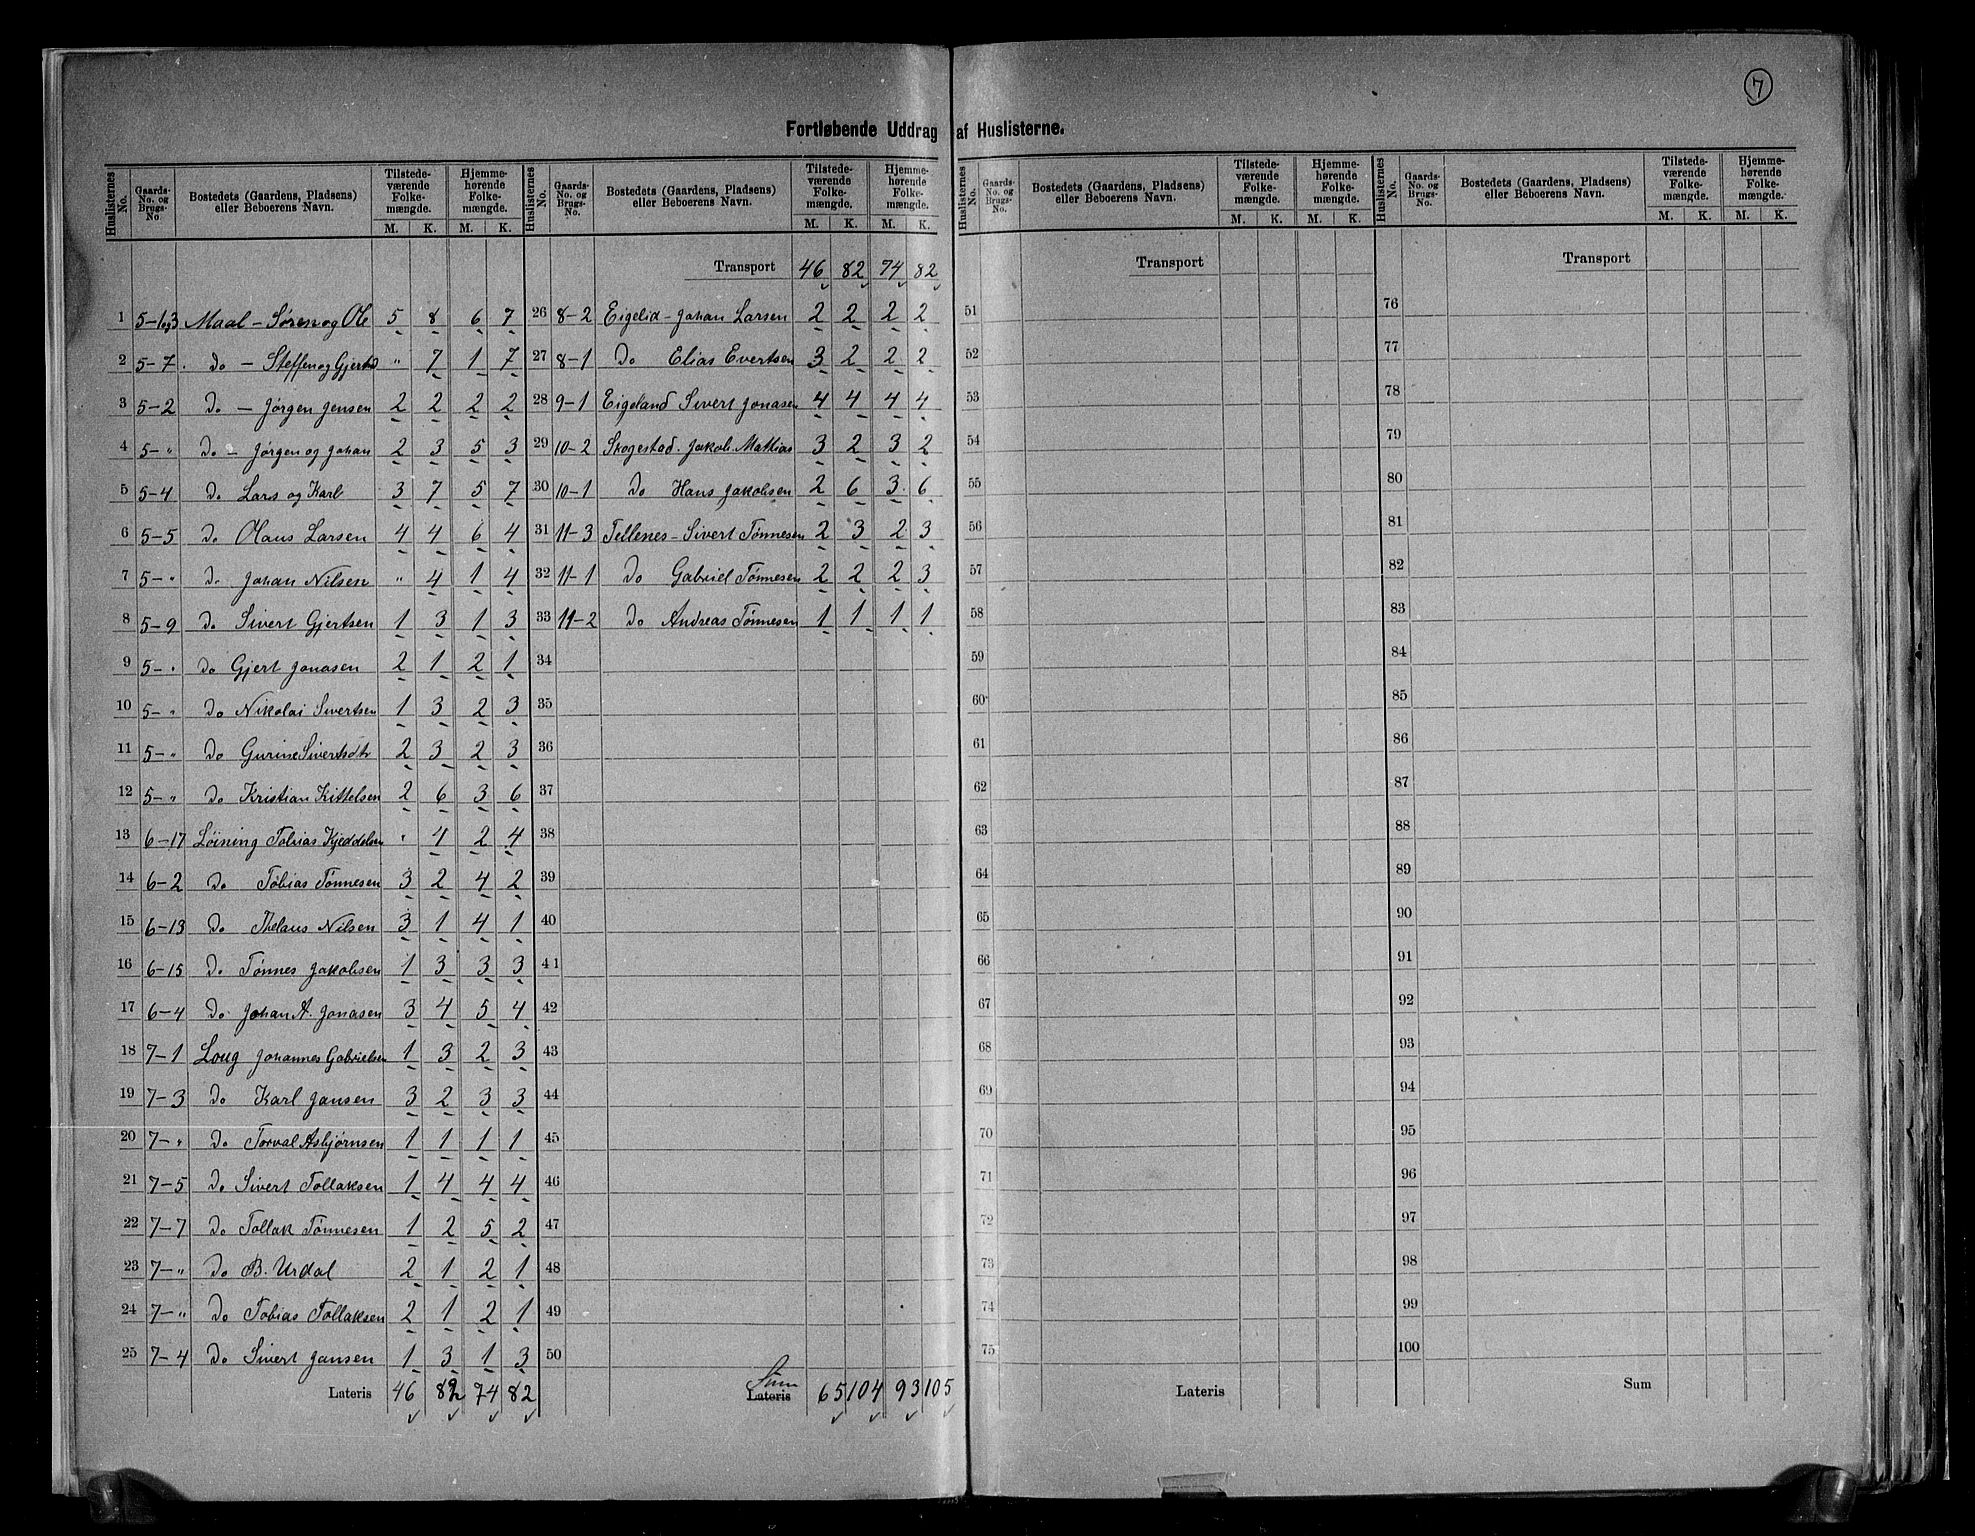 7
Fortløbende Uddrag af Huslisterne.
Huslisternes No. Gaards-No. og Brugs-No. Bostedets (Gaardens, Pladsens) eller Beboerens Navn. Tilstede-værende Folke-mængde. M. K. Hjemme-hørende Folke-mængde. M. K.
1 5-1og3 Maal - Søren og Ole 5 8 6 7
2 5-7 do - Steffen og Gjertrd " 7 1 7
3 5-2 do - Jørgen Jensen 2 2 2 2
4 5-" do - Jørgen og Johan 2 3 5 3
5 5-4 do Lars og Karl 3 7 5 7
6 5-5 do Olaus Larsen 4 4 6 4
7 5-" do Johan Nilsen " 4 1 4
8 5-9 do Sivert Gjertsen 1 3 1 3
9 5-" do Gjert Jonasen 2 1 2 1
10 5-" do Nikolai Sivertsen 1 3 2 3
11 5-" do Gurine Sivertsdtr 2 3 2 3
12 5-" do Kristian Kittelsen 2 6 3 6
13 6-17 Løining Tobias Kjeddelsen " 4 2 4
14 6-2 do Tobias Tønnesen 3 2 4 2
15 6-13 do Thelaus Nilsen 3 1 4 1
16 6-15 do Tønnes Jakobsen 1 3 3 3
17 6-4 do Johan A. Jonasen 3 4 5 4
18 7-1 Loug Johannes Gabrielsen 1 3 2 3
19 7-3 do Karl Jansen 3 2 3 3
20 7-" do Torval Asbjørnsen 1 1 1 1
21 7-5 do Sivert Tollaksen 1 4 4 4
22 7-7 do Tollak Tønnesen 1 2 5 2
23 7-" do B. Urdal 2 1 2 1
24 7-" do Tobias Tollaksen 2 1 2 1
25 7-4 do Sivert Jansen 1 3 1 3
Lateris 46 82 74 82
Huslisternes No. Gaards-No. og Brugs-No. Bostedets (Gaardens, Pladsens) eller Beboerens Navn. Tilstede-værende Folke-mængde. M. K. Hjemme-hørende Folke-mængde. M. K.
Transport 46 82 74 82
26 8-2 Eigelid - Johan Larsen 2 2 2 2
27 8-1 do Elias Evertsen 3 2 2 2
28 9-1 Eigeland Sivert Jonasen 4 4 4 4
29 10-2 Skogestad. Jakob Mathias 3 2 3 2
30 10-1 do Hans Jakobsen 2 6 3 6
31 11-3 Tellenes - Sivert Tønnesen 2 3 2 3
32 11-1 do Gabriel Tønnesen 2 2 2 3
33 11-2 do Andreas Tønnesen 1 1 1 1
34
35
36
37
38
39
40
41
42
43
44
45
46
47
48
49
50
Sum
Lateris 65 104 93 105
Huslisternes No. Gaards-No. og Brugs-No. Bostedets (Gaardens, Pladsens) eller Beboerens Navn. Tilstede-værende Folke-mængde. M. K. Hjemme-hørende Folke-mængde. M. K.
Transport
51
52
53
54
55
56
57
58
59
60
61
62
63
64
65
66
67
68
69
70
71
72
73
74
75
Lateris
Huslisternes No. Gaards-No. og Brugs-No. Bostedets (Gaardens, Pladsens) eller Beboerens Navn. Tilstede-værende Folke-mængde. M. K. Hjemme-hørende Folke-mængde. M. K.
Transport
76
77
78
79
80
81
82
83
84
85
86
87
88
89
90
91
92
93
94
95
96
97
98
99
100
Sum